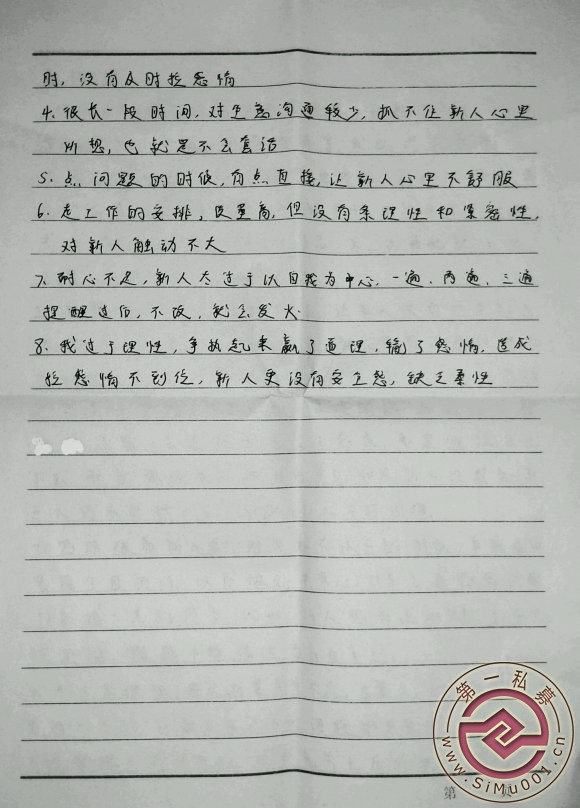 时，没有及时拉感情
4、很长一段时间，对生意沟通较少，抓不住新人心里
所想，也就是不会套话
5、点问题的时候，有点直接，让新人心里不舒服
6、走工作的安排，质量高，但没有条理性和紧密性，
对新人触动不大
7、耐心不足，新人太过于以自我为中心，一遍、两遍、三遍
提醒过后，不改，就会发火
8、我过于理性，争执起来赢了道理，输了感情，造成
拉感情不到位，新人更没有安全感，缺乏柔性
第一私募
www.SiMu001.cn
第 页